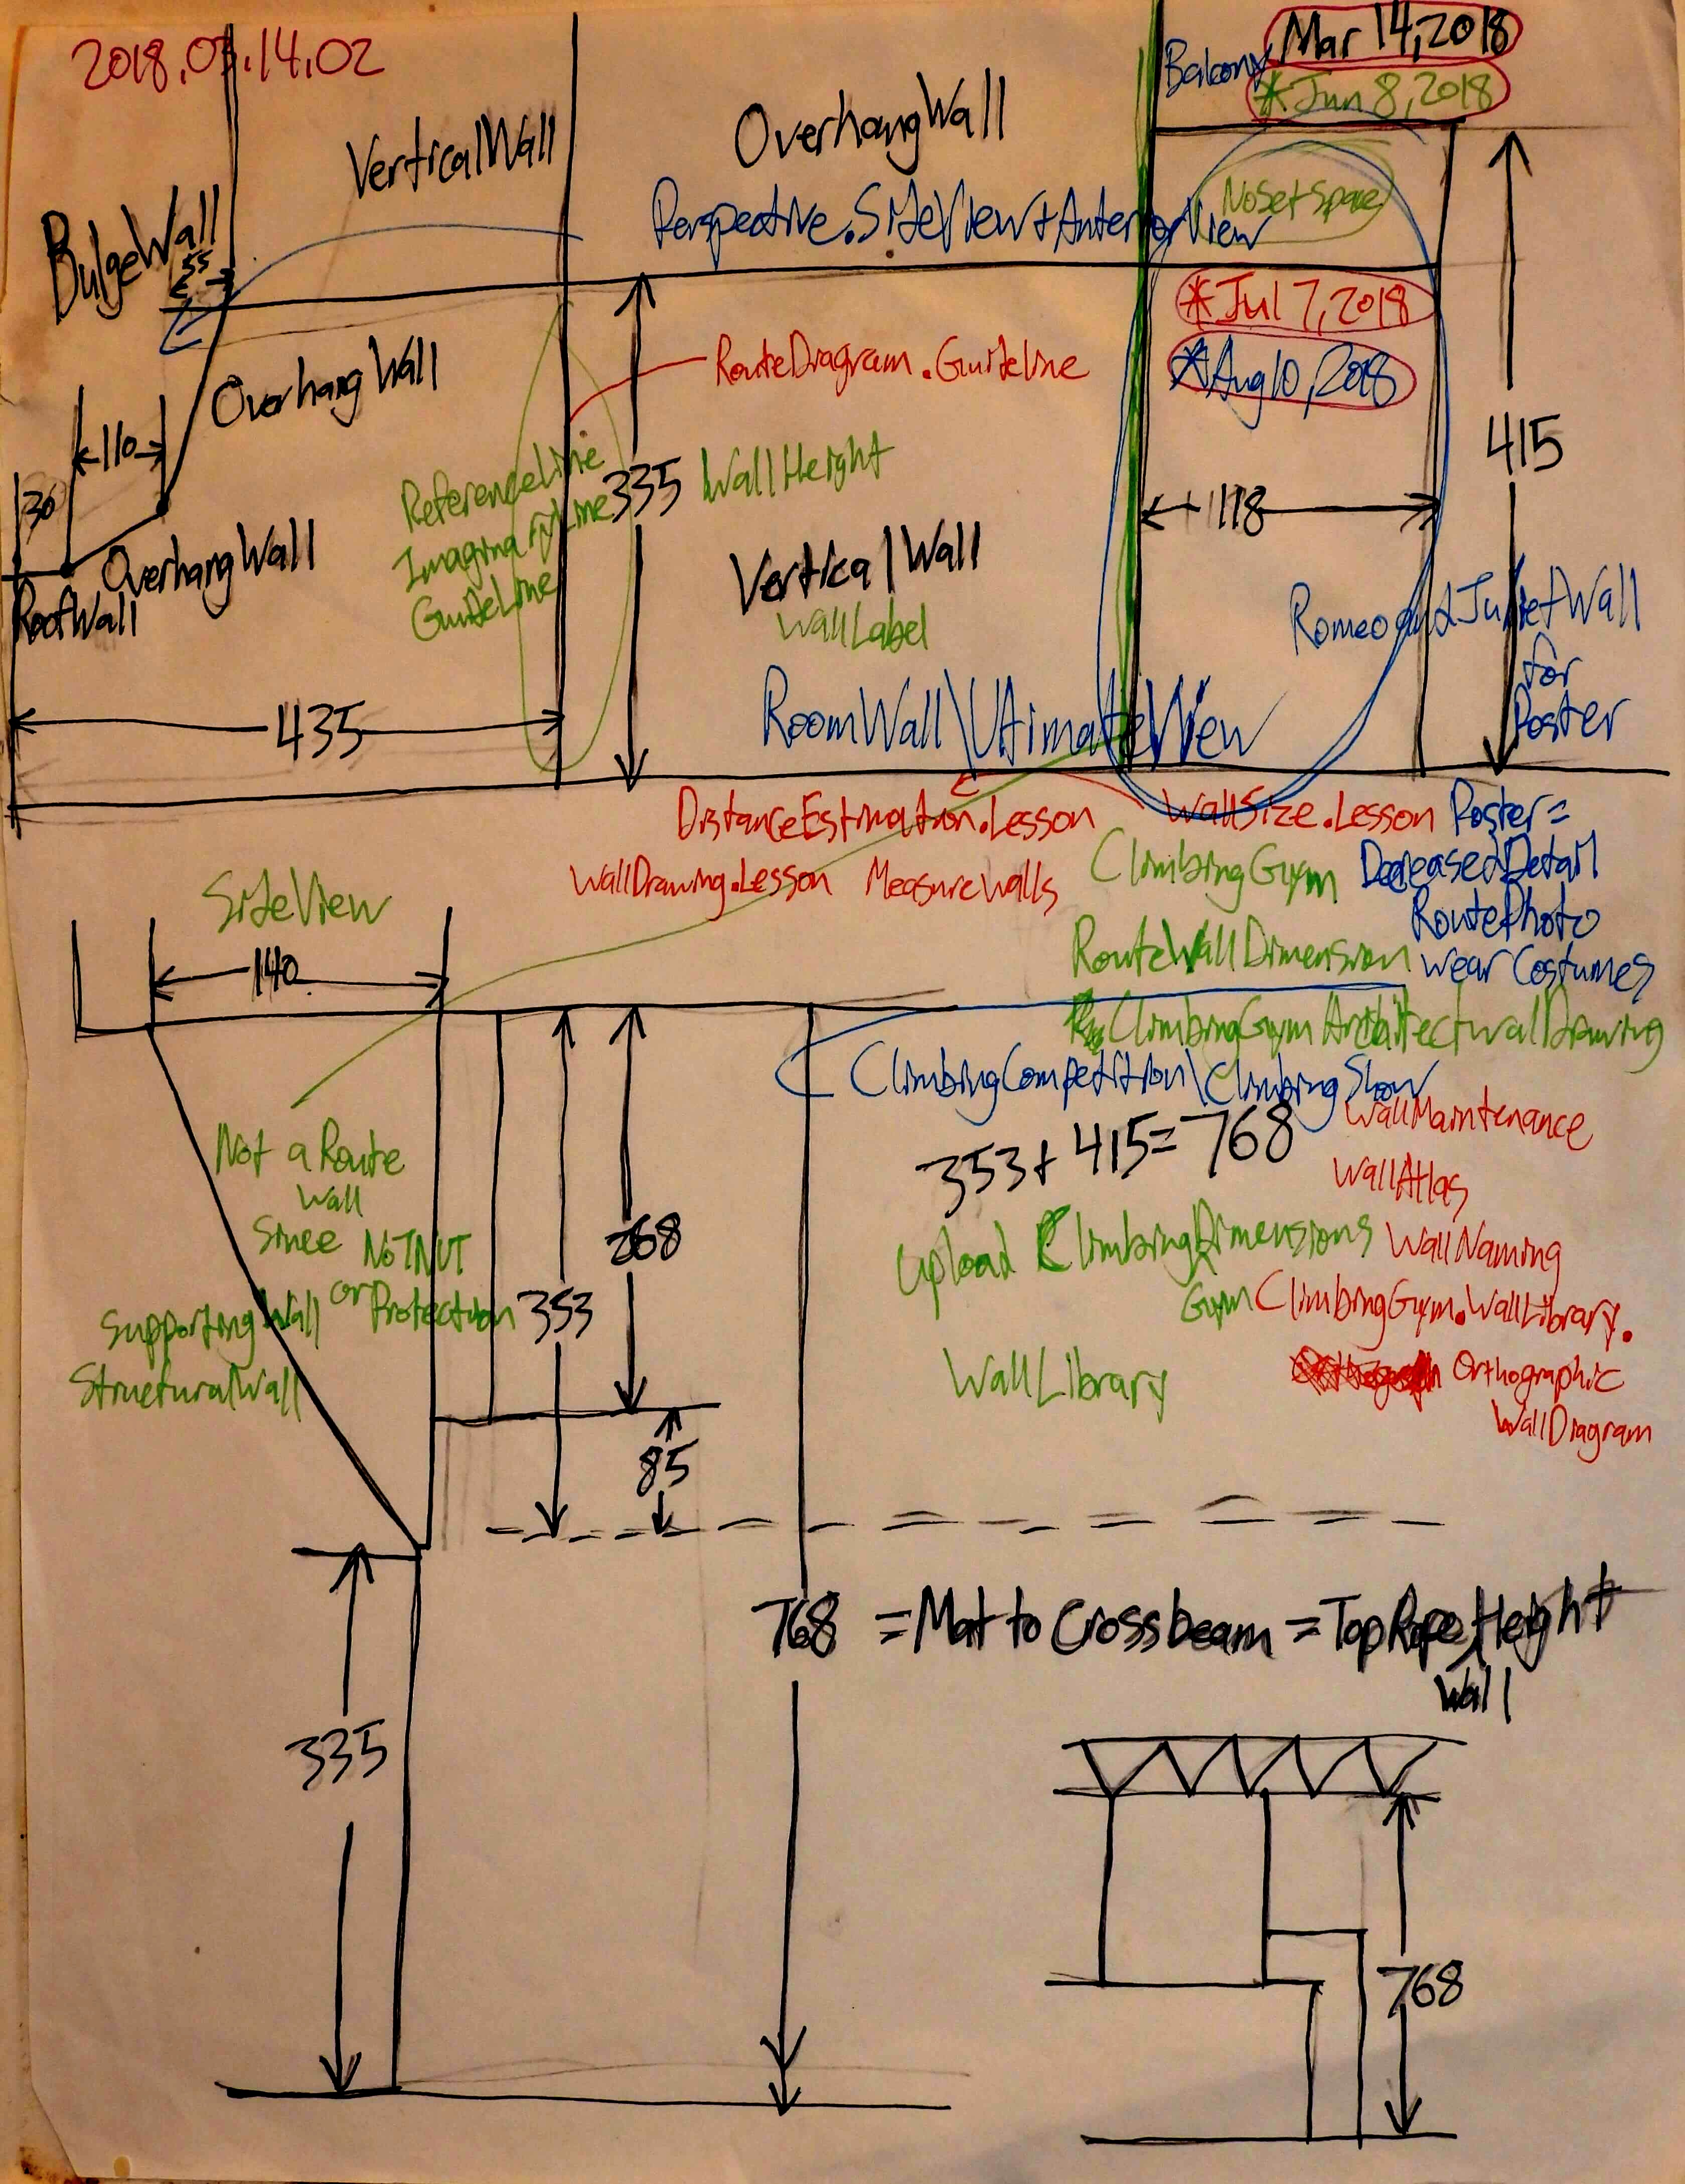 2018.03.14.02
Balcony
Mar 14, 2018
*Jun 8, 2018
VerticalWall
OverhangWall
NoSetSpace
BulgeWall
55
Perspective.SideView+AnteriorView
*Jul 7, 2018
*Aug 10, 2018
RouteDiagram.GuideLine
OverhangWall
110
30
ReferenceLine
ImaginaryLine
GuideLine
335
WallHeight
415
118
OverhangWall
RoofWall
VerticalWall
WallLabel
RomeoandJulietWall
for
Poster
RoomWall\UltimateView
435
DistanceEstimation.Lesson
WallSize.Lesson
Poster=
WallDrawing.Lesson
MeasureWalls
ClimbingGym
DecreasedDetail
RoutePhoto
SideView
140
RouteWallDimension
wearCostumes
ClimbingGymArchitecturalDrawing
ClimbingCompetition\ClimbingShow
353+415=768
WallMaintenance
WallAtlas
Not a Route
Wall
Since NoTNUT
or Protection
SupportingWall
StructuralWall
268
353
Upload ClimbingDimensions
Gym
WallNaming
ClimbingGym.WallLibrary.
Orthographic
WallDiagram
WallLibrary
85
768 =Mat to Crossbeam =TopRope Height
Wall
335
768